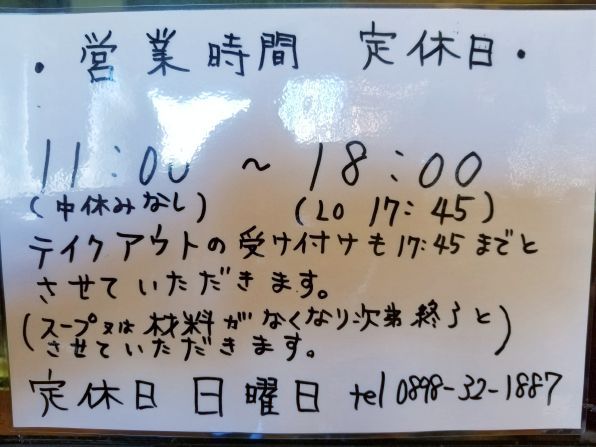 ・営業時間 定休日・
11:00 ~ 18:00
(中休みなし) (LO 17:45)
テイクアウトの受け付けも17:45までと
させていただきます。
(スープ又は材料がなくなり次第終了と
させていただきます。)
定休日 日曜日 tel 0898-32-1887